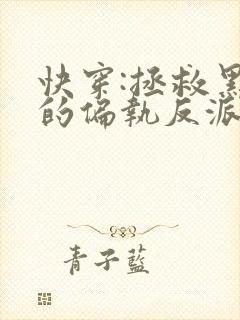 快穿:拯救黑
的偏執反派
青子藍